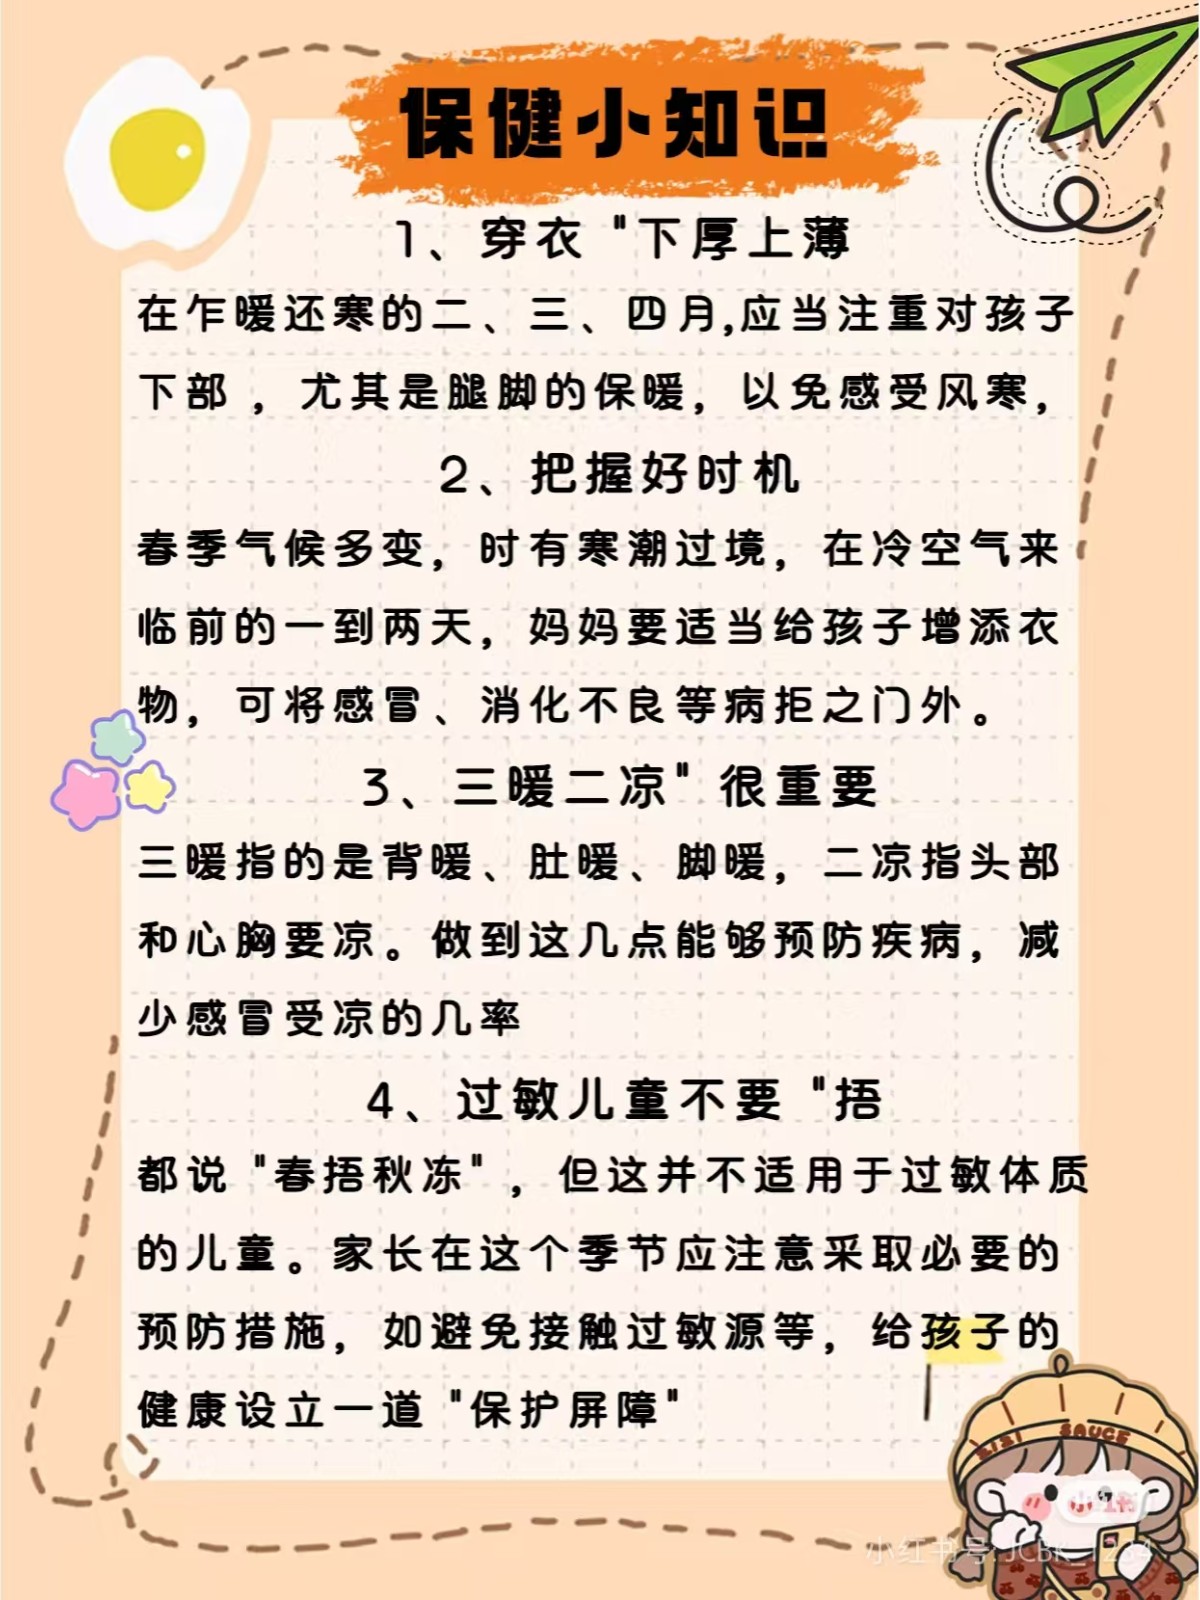 保健小知识
1、穿衣 "下厚上薄
在乍暖还寒的二、三、四月,应当注重对孩子
下部 ，尤其是腿脚的保暖，以免感受风寒，
2、把握好时机
春季气候多变，时有寒潮过境，在冷空气来
临前的一到两天，妈妈要适当给孩子增添衣
物，可将感冒、消化不良等病拒之门外。
3、三暖二凉" 很重要
三暖指的是背暖、肚暖、脚暖，二凉指头部
和心胸要凉。做到这几点能够预防疾病，减
少感冒受凉的几率
4、过敏儿童不要 "捂
都说 "春捂秋冻" ，但这并不适用于过敏体质
的儿童。家长在这个季节应注意采取必要的
预防措施，如避免接触过敏源等，给孩子的
健康设立一道 "保护屏障"
SAUCE
小红书号: JCBK_1234